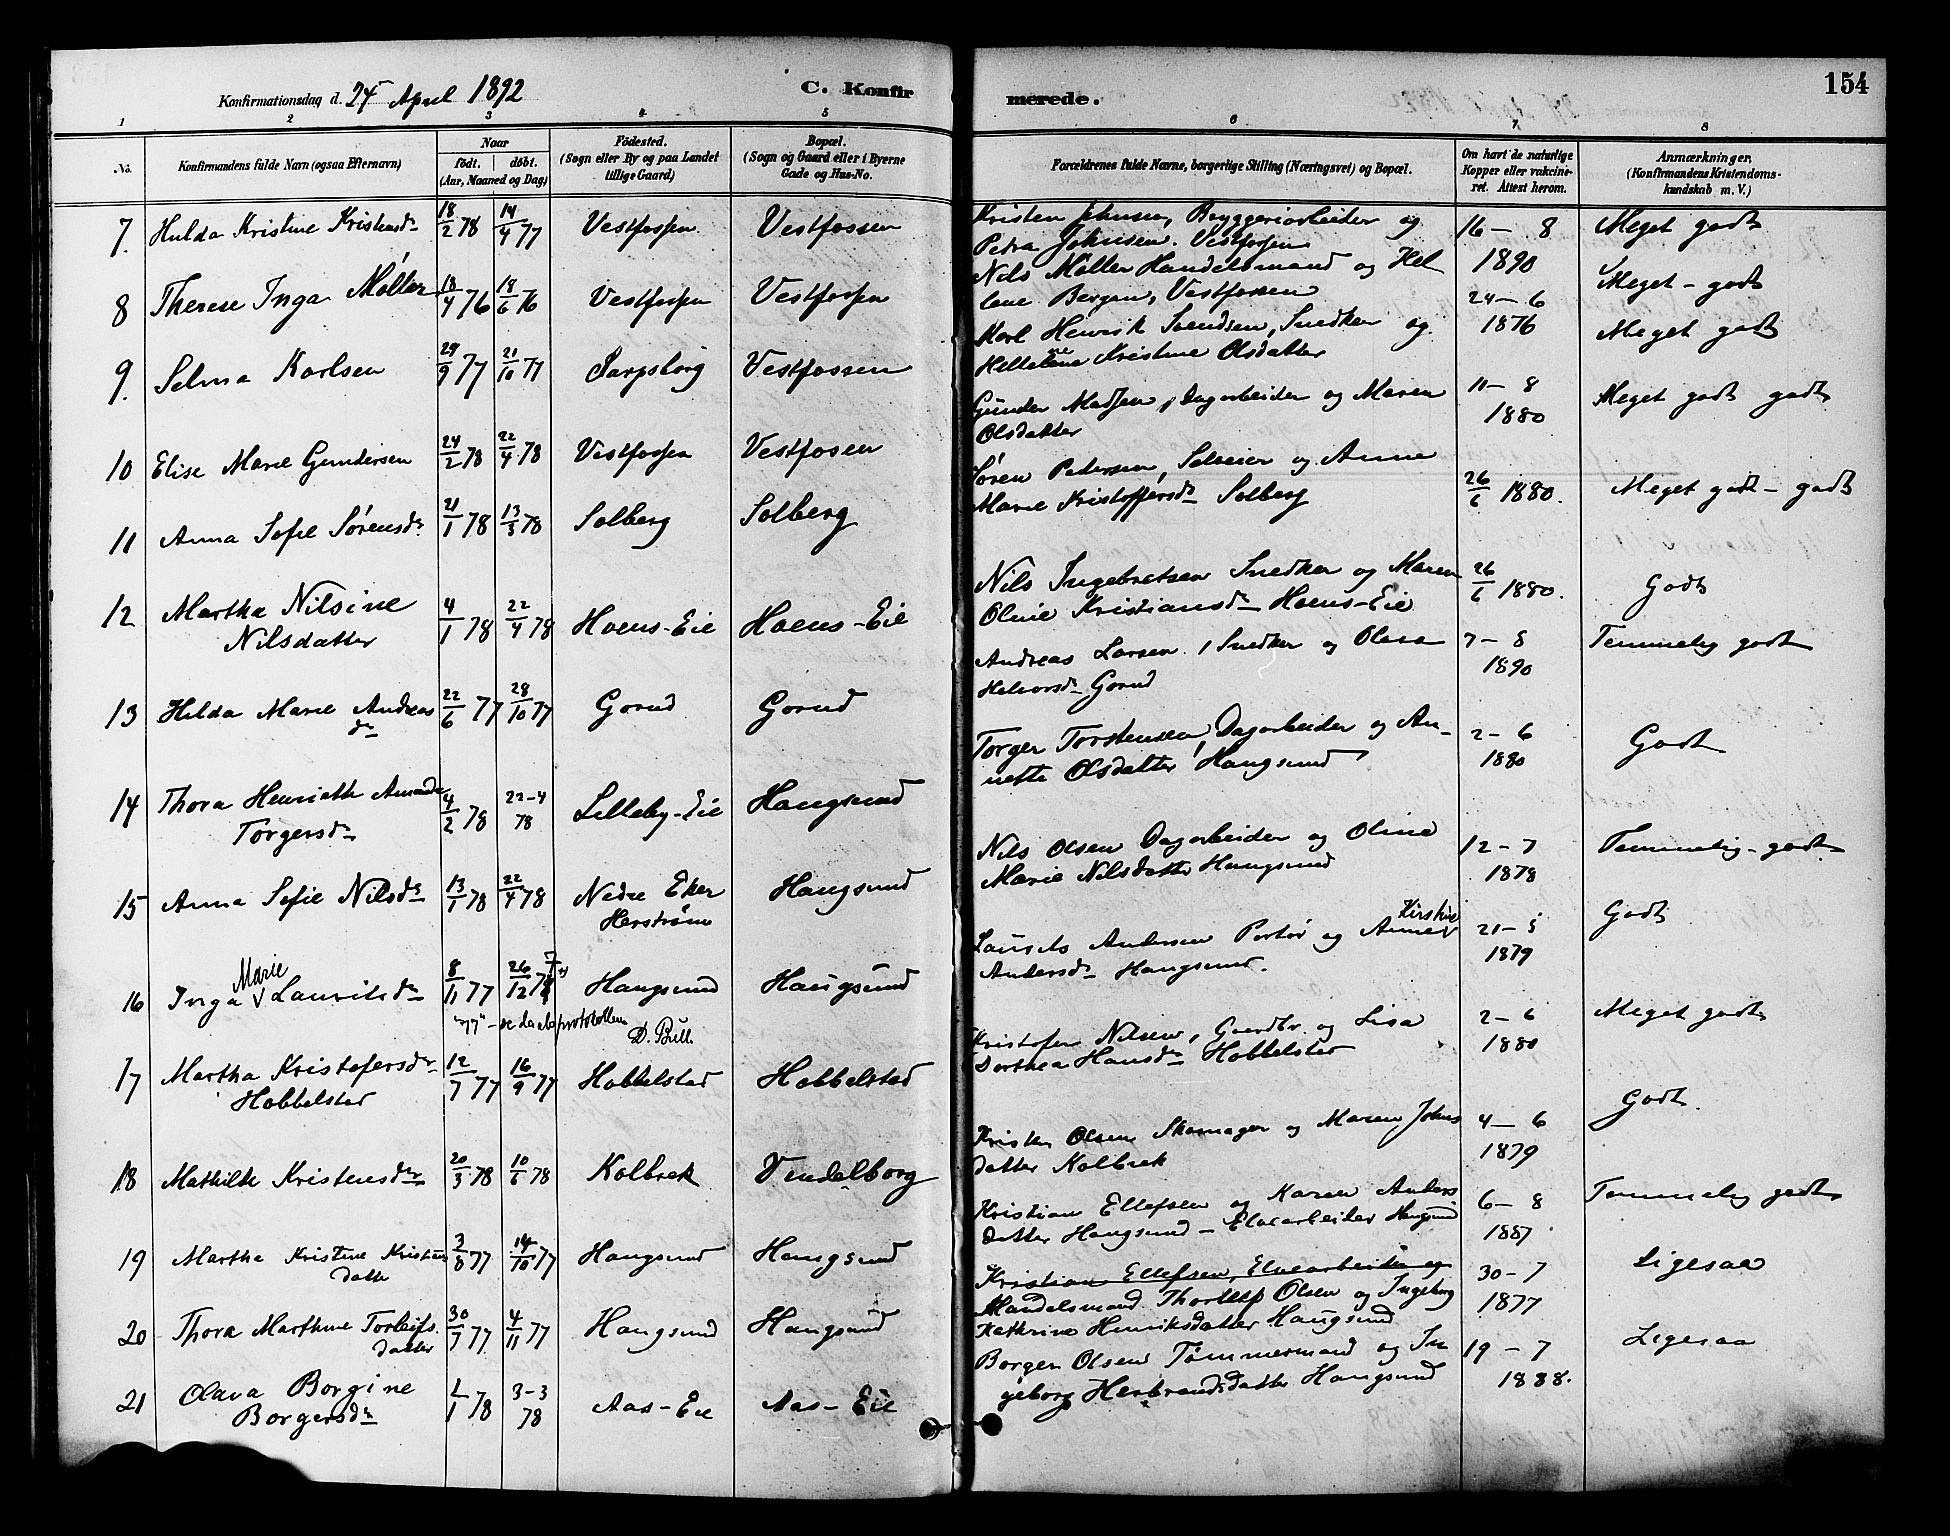 154
Konfirmationsdag d. 24 April 1892 C. Konfirmerede.
1 2 3 4 5 6 7 8
No.
Konfirmandens fulde Navn (ogsaa Efternavn)
Naar
födt. döbt.
(Aar, Maaned og Dag)
Födested.
(Sogn eller By og paa Landet
tillige Gaard)
Bopæl.
(Sogn og Gaard eller i Byerne
Gade og Hus-No.
Forældrenes fulde Navne, borgerlige Stilling (Næringsvei) og Bopæl.
Om havt de naturlige
Kopper eller vakcine-
ret. Attest herom.
Anmærkninger,
(Konfirmandens Kristendoms-
kundskab m. V.)
7. Hulda Kristine Kristensdr 18/2 78 14/4 77 Vestfossen Vestfossen
Kristen Johnsen, Bryggeriarbeider og
Pedra Johnsen. Vestfossen
16 – 8
1890
Meget godt
8 Therese Inga Møller 18/4 76 18/6 76 Vestfossen Vestfossen
Nils Møller Handelsmand og Hel
lene Bergan, Vestfossen
24 – 6
1876
Meget – godt
9. Selma Karlsen 29/9 77 21/10 77 Sarpsborg Vestfossen
Karl Henrik Svendsen, Snedker og
Hellene Kristine Olsdatter
Meget godt
10 Elise Marie Gundersen 24/2 78 22/4 78 Vestfossen Vestfosen
Gunder Madsen, Dagarbeider og Maren
Olsdatter
11 – 8
1880
Meget godt godt
11 Anna Sofie Sørensdr 21/1 78 13/3 78 Solberg Solberg
Søren Pedersen, Selveier og Anne
Marie Kristoffersdr Solberg
26/6 1880.
Meget godt – godt
12 Martha Nilsine
Nilsdatter
4/1 78 22/4 78 Hoens-Eie Hoens-Eie
Nils Ingebretsen Snedker og Maren
Oline Kristiansdr Hoens-Eie
26/6 1880.
Godt
13 Hilda Marie Andreas
dr
22/6 77 28/10 77 Gorud Gorud
Andreas Larsen, Snedker og Olava
Halvorsdr Gorud
7 – 8
1890
Temmelig godt
14 Thora Henriette Amanda
Torgersdr
4/2 78 22–4
78
Lilleby-Eie Haugsund
Torger Torstensen, Dagarbeider og An-
nette Olsdatter, Haugsund
2 – 6
1880
Godt
15 Anna Sofie Nilsdr 13/1 78 22/4 78 Nedre Eker
Herstrøm
Haugsund
Nils Olsen Dagarbeider og Oline
Marie Nilsdatter Haugsund
12 – 7
1878
Temmelig – godt
16 Inga Marie Lauritsdr 8/11 77 26/12 78 7 Haugsund Haugsund
"77" – se daabsprotokollen D. Bull.
Laurits Andersen Portør og Anne Kirstine
Andersdr Haugsund.
21 – 5
1879
Godt
17 Martha Kristofersdr
Hobbelstad
12/7 77 16/9 77 Hobbelstad Hobbelstad
Kristofer Nilsen, Gaardbr. og Lisa
Dorthea Hansdr Hobbelstad
2 – 6
1880
Meget godt
18 Mathilde Kristensdr 20/3 78 10/6 78 Kolbrek Vendelborg
Kristen Olsen Skomager og Maren Johns
datter Kolbrek
4 – 6
1879
Godt.
19 Martha Kristine Kristians
datter
3/8 77 14/10 77 Haugsund Haugsund
Kristian Ellefsen og Karen Anders
datter Haugsund – Elvearbeider Haugsund
6 – 8
1887
Temmelig godt
20 Thora Marthine Torleifs
datter
30/7 77 4/11 77 Haugsund Haugsund
Kristian Ellefsen, Elvearbeider og
Handelsmand Thorleif Olsen og Ingeborg
Kathrine Henriksdatter Haugsund
30 – 7
1877
Ligesaa
21 Olava Borgine
Borgersdr
2/1 78 3–3
78
Aas-Eie Aas-Eie
Borger Olsen Tømmermand og In
geborg Herbrandsdatter Haugsund
19 – 7
1888.
Ligesaa